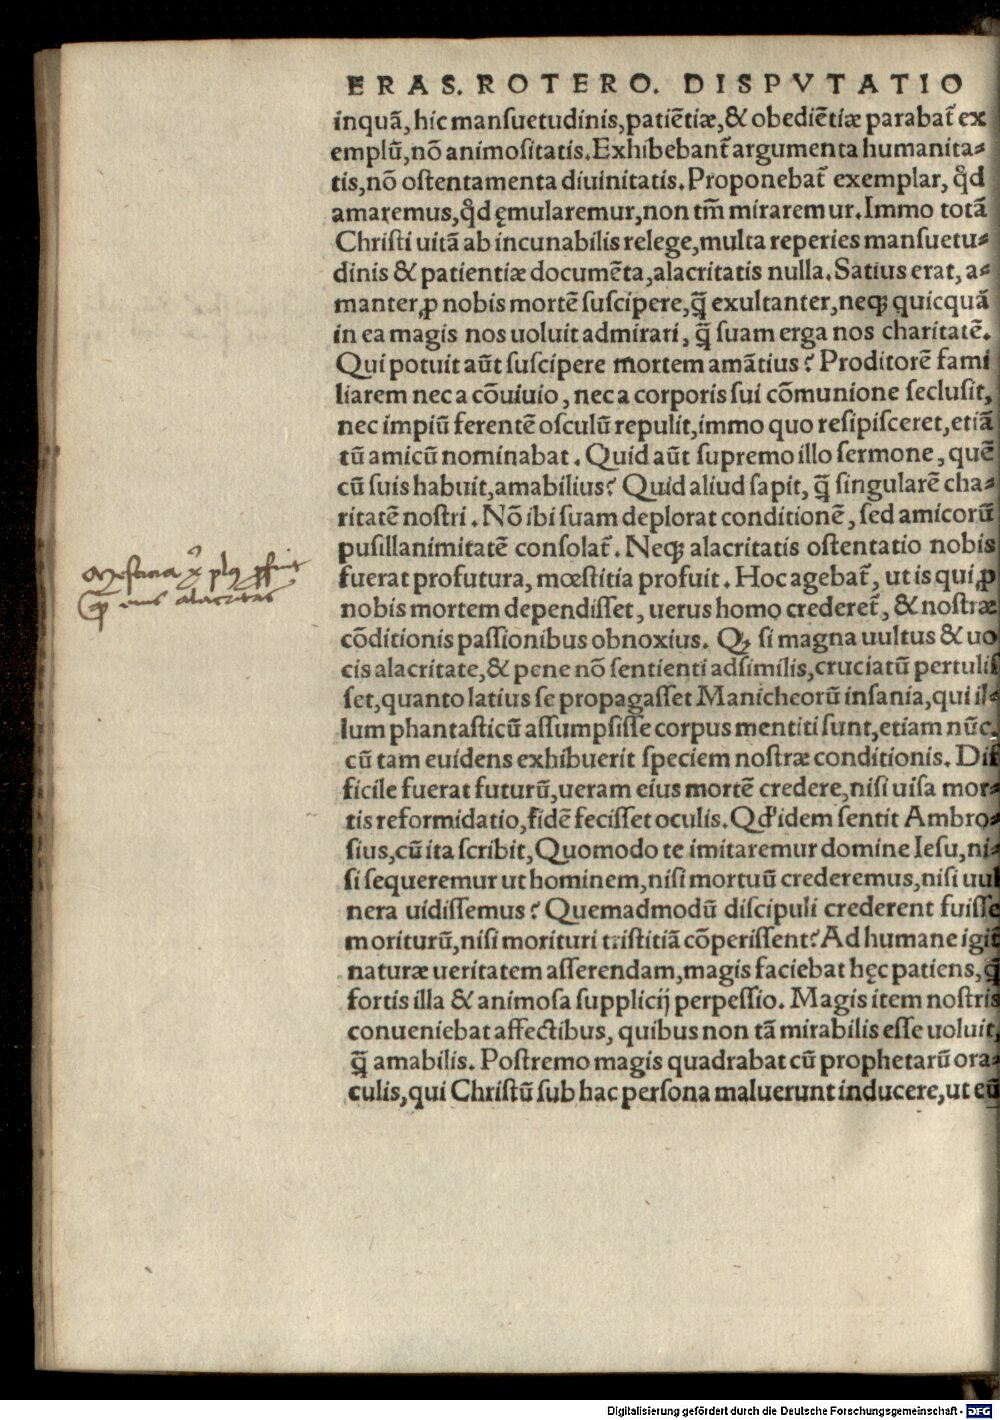 ERAS. ROTERO. DISPVTATIO
inquã, hic manſuetudinis,patiẽtiæ,& obediẽtiæ parabat᷑ ex
emplũ,nõ animoſitatis.Exhibebant᷑ argumenta humanita⸗
tis,nõ oſtentamenta diuinitatis.Proponebat᷑ exemplar, qd̕
amaremus,qd̕ ęmularemur,non tm̃ miraremur.Immo totã
Chriſti uitã ab incunabilis relege,multa reperies manſuetu⸗
dinis & patientiæ documẽta,alacritatis nulla.Satius erat, a⸗
manter,ꝓ nobis mortẽ ſuſcipere,q̃ exultanter,neqꝫ quicquã
in ea magis nos uoluit admirari, q̃ ſuam erga nos charitatẽ.
Qui potuit aũt ſuſcipere mortem amãtius? Proditorẽ fami
liarem nec a cõuiuio, nec a corporis ſui cõmunione ſecluſit,
nec impiũ ferentẽ oſculũ repulit,immo quo reſipiſceret,etiã
tũ amicũ nominabat. Quid aũt ſupremo illo ſermone, quẽ
cũ ſuis habuit,amabilius? Quid aliud ſapit, q̃ ſingularẽ cha⸗
ritatẽ noſtri. Nõ ibi ſuam deplorat conditionẽ, ſed amicorũ
puſillanimitatẽ conſolat᷑. Neqꝫ alacritatis oſtentatio nobis
fuerat profutura, mœſtitia profuit. Hoc agebat᷑, ut is qui ꝓ
nobis mortem dependiſſet, uerus homo crederet᷑, & noſtræ
cõditionis paſſionibus obnoxius. Qꝫ ſi magna uultus & uo
cis alacritate,& pene nõ ſentienti adſimilis,cruciatũ pertuliſ
ſet,quanto latius ſe propagaſſet Manicheorũ inſania,qui il⸗
lum phantaſticũ aſſumpſiſſe corpus mentiti ſunt,etiam nũc,
cũ tam euidens exhibuerit ſpeciem noſtræ conditionis. Dif
ficile fuerat futurũ,ueram eius mortẽ credere,niſi uiſa mor⸗
tis reformidatio,fidẽ feciſſet oculis.Qd̕ idem ſentit Ambro⸗
ſius,cũ ita ſcribit,Quomodo te imitaremur domine Ieſu,ni⸗
ſi ſequeremur ut hominem,niſi mortuũ crederemus,niſi uul
nera uidiſſemus? Quemadmodũ diſcipuli crederent fuiſſe
moriturũ,niſi morituri triſtitiã cõperiſſent? Ad humane igit᷑
naturæ ueritatem aſſerendam,magis faciebat hęc patiens,q̃
fortis illa & animoſa ſupplicij perpeſſio. Magis item noſtris
conueniebat affectibus, quibus non tã mirabilis eſſe uoluit,
q̃ amabilis. Poſtremo magis quadrabat cũ prophetarũ ora⸗
culis,qui Chriſtũ ſub hac perſona maluerunt inducere,ut eũ
alacritas
Digitalisierung gefördert durch die Deutsche Forschungsgemeinschaft - DFG